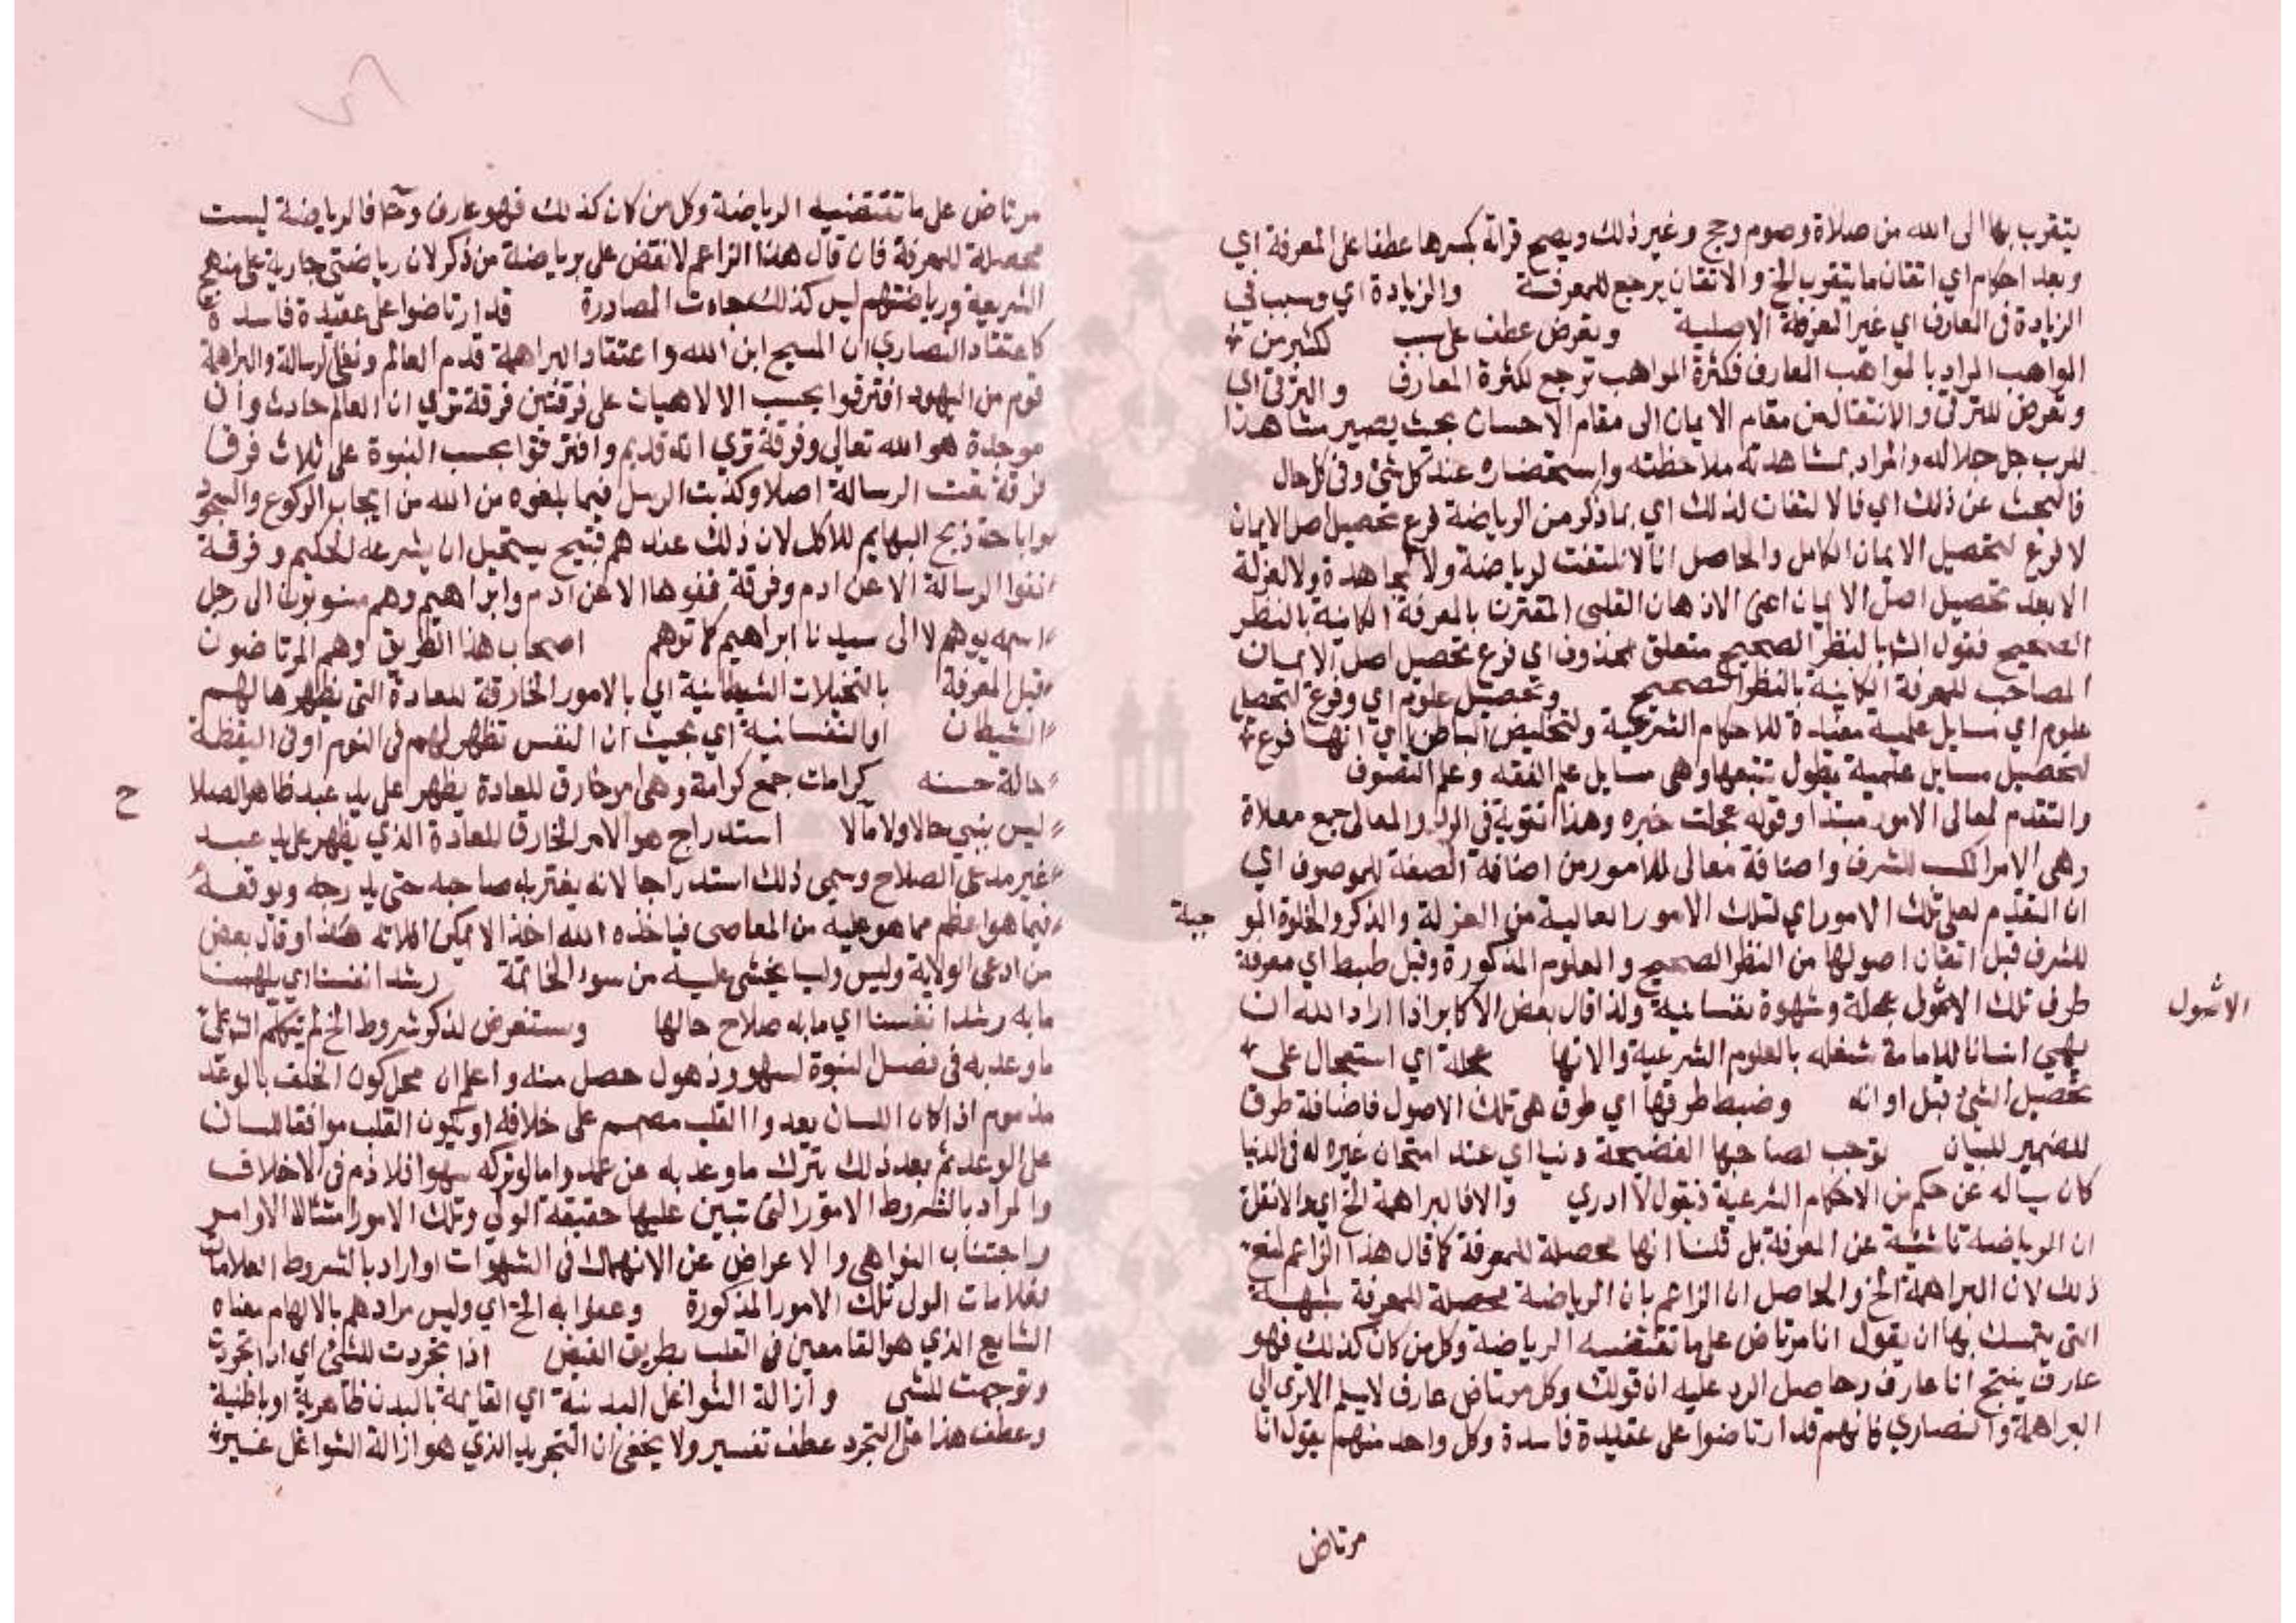 يتقرب بها الى الله من صلاة وصوم وحج وغير ذلك ويصح قراة بكسرها عطفا على المعرفة اي
وبعد احكام اي اتقان ما يتقرب الخ والاتقان يرجع للمعرفة والزيادة اي وسبب في
الزيادة في المعارف اي غير المعرفة الاصلية وبعرض عطف على سبب كثير من
المواهب المراد بالمواهب المعارف فكثرة المواهب ترجع لكثرة المعارف والترقي اي
وتعرض للترقي والانتقال من مقام الايمان الى مقام الاحسان بحيث يصير مشاهدا
للرب جل جلاله والمراد بمشاهدته ملاحظته واستحضاره عند كل شئ وفي كل حال
فالبحث عن ذلك اي فالالتفات لذلك اي بما ذكر من الرياضة فرع تحصيل اصل الايمان
لا فرع لتحصيل الايمان الكامل والحاصل انا لا نلتفت لرياضة ولا لمجاهدة ولا لعزلة
الا بعد تحصيل اصل الايمان اعنى الاذعان القلبي المقترن بالمعرفة الكاينة بالنظر
الصحيح فقول الش بالنظر الصحيح متعلق بمحذوف اي فرع تحصيل اصل الايمان
المصاحب للمعرفة الكاينة بالنظر الصحيح وتحصيل علوم اي وفرع لتحصيل
علوم اي مسايل علمية مفيدة للاحكام الشرعية ولتخليص الباطن اي انها فرع
لتحصيل مسايل علمية يطول تتبعها وهي مسايل علم الفقه وعلم التصوف
والتقدم لمعالى الامور مبتدا وقوله عجلت خبره وهذا تقوية في الرد والمعالى جمع معلاة
وهى الامر المكسب للشرف واضافة معالى للامور من اضافة الصفة للموصوف اي
ان التقدم لعلى تلك الامور اي لتلك الامور العالية من العزلة والذكر والخلوة الموجبة
للشرف قبل اتقان اصولها من النظر الصحيح والعلوم المذكورة وقبل ضبط اي معرفة
طرف تلك الاصول عجلة وشهوة نفسانية ولذا قال بعض الاكابر اذا اراد الله ان
الاصول
يهيي انسانا للامامة شغله بالعلوم الشرعية والاتها عجلة اي استعجال على
تحصيل الشئ قبل اوانه وضبط طرقها اي طرق هي تلك الاصول فاضافة طرق
للضمير للبيان توجب لصاحبها الفضيحة دنيا اي عند امتحان غيره له في الدنيا
كان يساله عن حكم من الاحكام الشرعية فيقول لا ادري والا فالبراهمة الخ اي والا نقل
ان الرياضة ناشئة عن المعرفة بل قلنا انها محصلة للمعرفة كما قال هذا الزاعم لمنع
ذلك لان البراهمة الخ والحاصل ان الزاعم بان الرياضة محصلة للمعرفة شبهته
التي يتمسك بها ان يقول انا مرتاض على ما تقتضيه الرياضة وكل من كان كذلك فهو
عارف ينتج انا عارف وحاصل الرد عليه ان قولك وكل مرتاض عارف لا يسلم الا ترى الى
البراهمة والنصاري فانهم قد ارتاضوا على عقيدة فاسدة وكل واحد منهم يقول انا
مرتاض
مرتاض على ما تقتضيه الرياضة وكل من كان كذلك فهو عارف وح فالرياضة ليست
محصلة للمعرفة فان قال هذا الزاعم لا نقض علي برياضة من ذكر لان رياضتي جارية على منهج
الشريعة ورياضتهم ليس كذلك جاءت المصادرة قد ارتاضوا على عقيدة فاسدة
كاعتقاد النصاري ان المسيح ابن الله واعتقاد البراهمة قدم العالم ونفي الرسالة والبراهمة
قوم من اليهود افترقوا بحسب الالاهيات على فرقتين فرقة تري ان العالم حادث وان
موجده هو الله تعالى وفرقة تري انه قديم وافترقوا بحسب النبوة على ثلاث فرق
فرقة نفت الرسالة اصلا وكذبت الرسل فيما بلغوه من الله من ايجاب الركوع والسجود
واباحة ذبح البهايم للاكل لان ذلك عندهم قبيح يستحيل ان يشرعه لحكيم وفرقة
نفوا الرسالة الا عن ادم وفرقة نفوها الا عن ادم وابراهيم وهم منسوبون الى رجل
اسمه برهم لا الى سيدنا ابراهيم كما توهم اصحاب هذا الطريق وهم المرتاضون
قبل المعرفة بالتخيلات الشيطانية اي بالامور الخارقة للعادة التي يظهرها لهم
الشيطان او النفسانية اي بحيث ان النفس تظهر لهم في النوم او في اليقظة
حالة حسنه كرامات جمع كرامة وهي امر خارق للعادة يظهر على يد عبد ظاهر الصلاح
ليس بنبي حالا ولا مآلا استدراج هو الامر الخارق للعادة الذي يظهر على يد عبد
غير مدعى الصلاح وسمي ذلك استدراجا لانه يغتر به صاحبه حتى يدرجه ويوقعه
فيما هو اعظم مما هو عليه من المعاصى فياخذه الله اخذا لا يمكن افلاته هكذا وقال بعض
من ادعى الولاية وليس وليا يخشى عليه من سوء الخاتمة رشد انفسنا اي يلهمنا
ما به رشد انفسنا اي ما به صلاح حالها وسنتعرض لذكر شروط الخ لم يتكلم الش على
ما وعد به في فصل النبوة لسهو وذهول حصل منه واعلم ان محل كون الخلف بالوعد
مذموم اذا كان اللسان يعد والقلب مصمم على خلافه او يكون القلب موافقا للسان
على الوعد ثم بعد ذلك يترك ما وعد به عن عمد واما لو تركه سهوا فلا ذم في الاخلاف
والمراد بالشروط الامور التي تبين عليها حقيقة الولي وتلك الامور امتثالا الاوامر
واجتناب النواهى والاعراض عن الانهماك في الشهوات او اراد بالشروط العلامات
فعلامات الولى تلك الامور المذكورة وعملوا به الخ اي وليس مرادهم بالالهام معناه
الشايع الذي هو القا معين في القلب بطريق الفيض اذا تجردت للشئ اي اذا تجردت
وتوجهت للشي وازالة الشواغل البدنية اي القايمة بالبدن ظاهرية او باطنية
وعطف هذا على التجرد عطف تفسير ولا يخفى ان التجريد الذي هو ازالة الشواغل غير